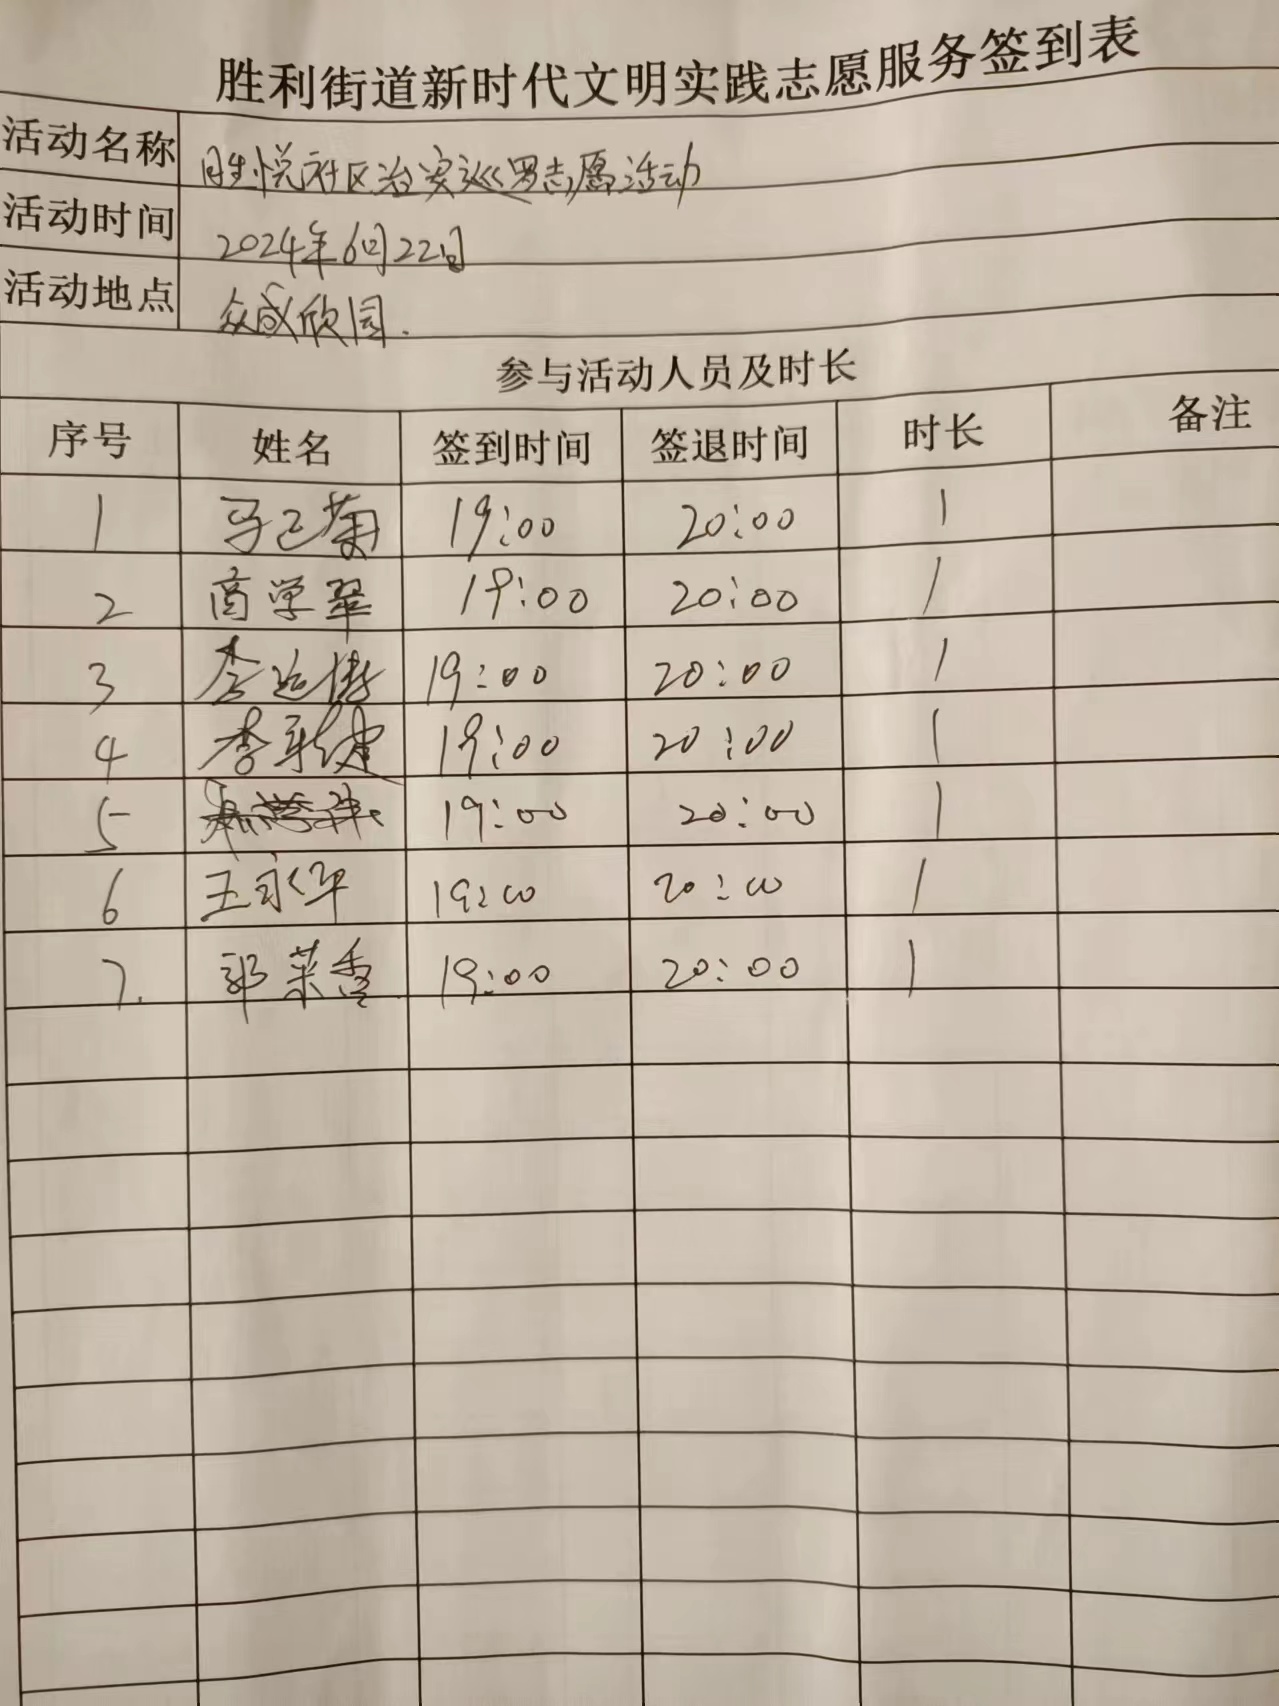 胜利街道新时代文明实践志愿服务签到表
活动名称 胜悦社区治安巡逻志愿活动
活动时间 2024年6月22日
活动地点 众成欣园.
参与活动人员及时长
序号 姓名 签到时间 签退时间 时长 备注
1 马已菊 19:00 20:00 1
2 商学翠 19:00 20:00 1
3 李 19:00 20:00 1
4 李 19:00 20:00 1
5 19:00 20:00 1
6 王永华 19:00 20:00 1
7. 郭菜香 19:00 20:00 1